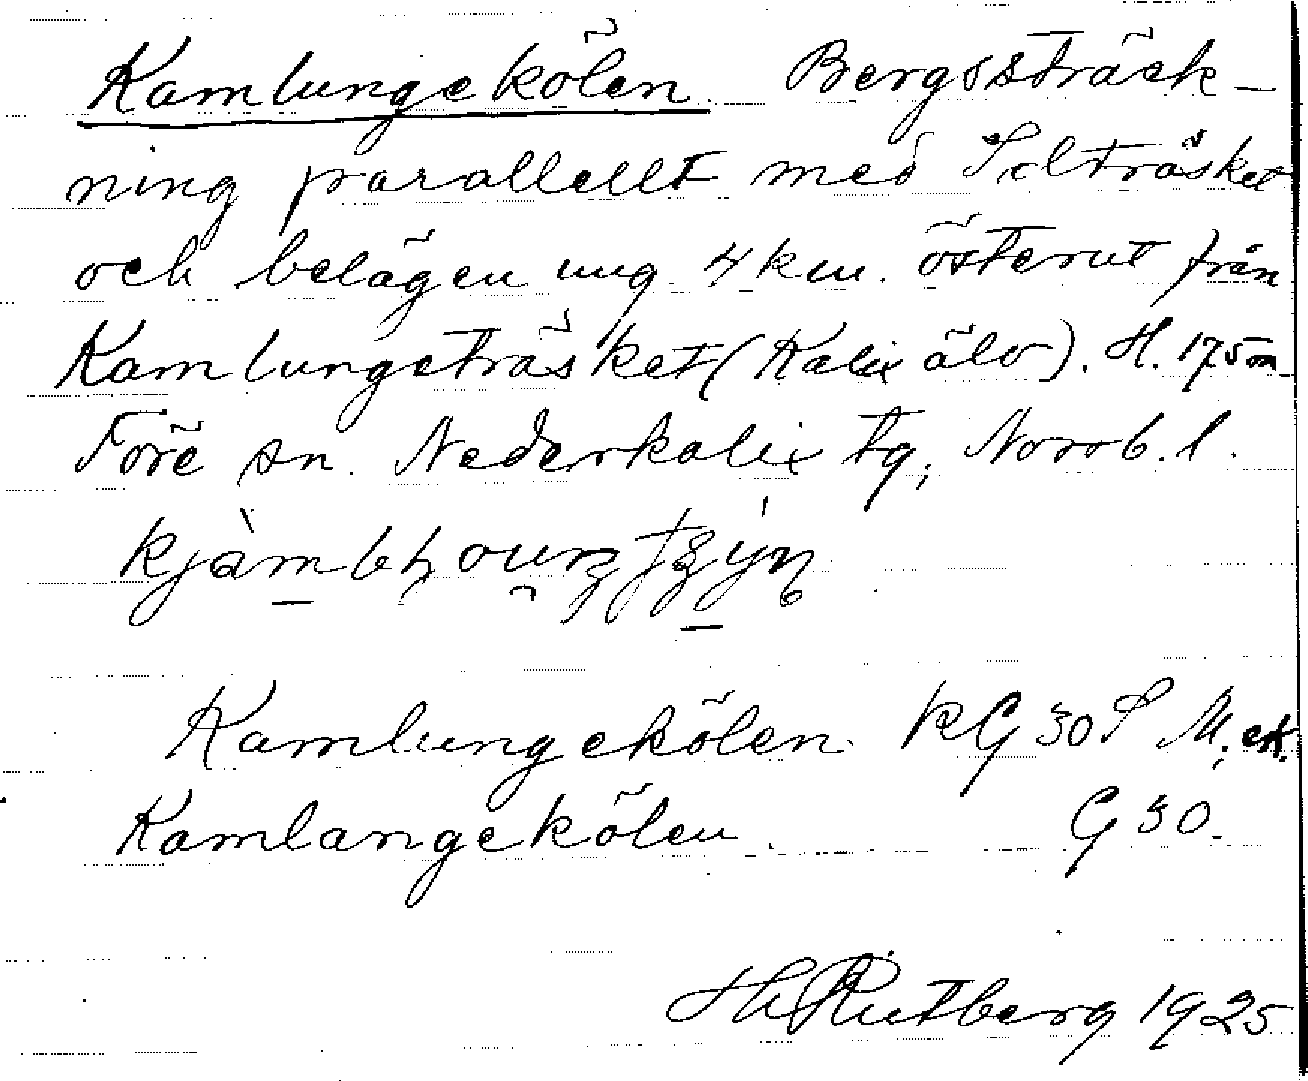 Kamlungekölen Bergssträck-
ning parallellt med Silträsket
och belägen ung. 4 km. österut från
Kamlungeträsket (Kalix älv). H. 175 m.
Töre sn. Nederkalix tg, Norrb. l.
Kamlungekölen KG 30 S M, ek.
Kamlangekölen G 30.
Hj Rutberg 1925